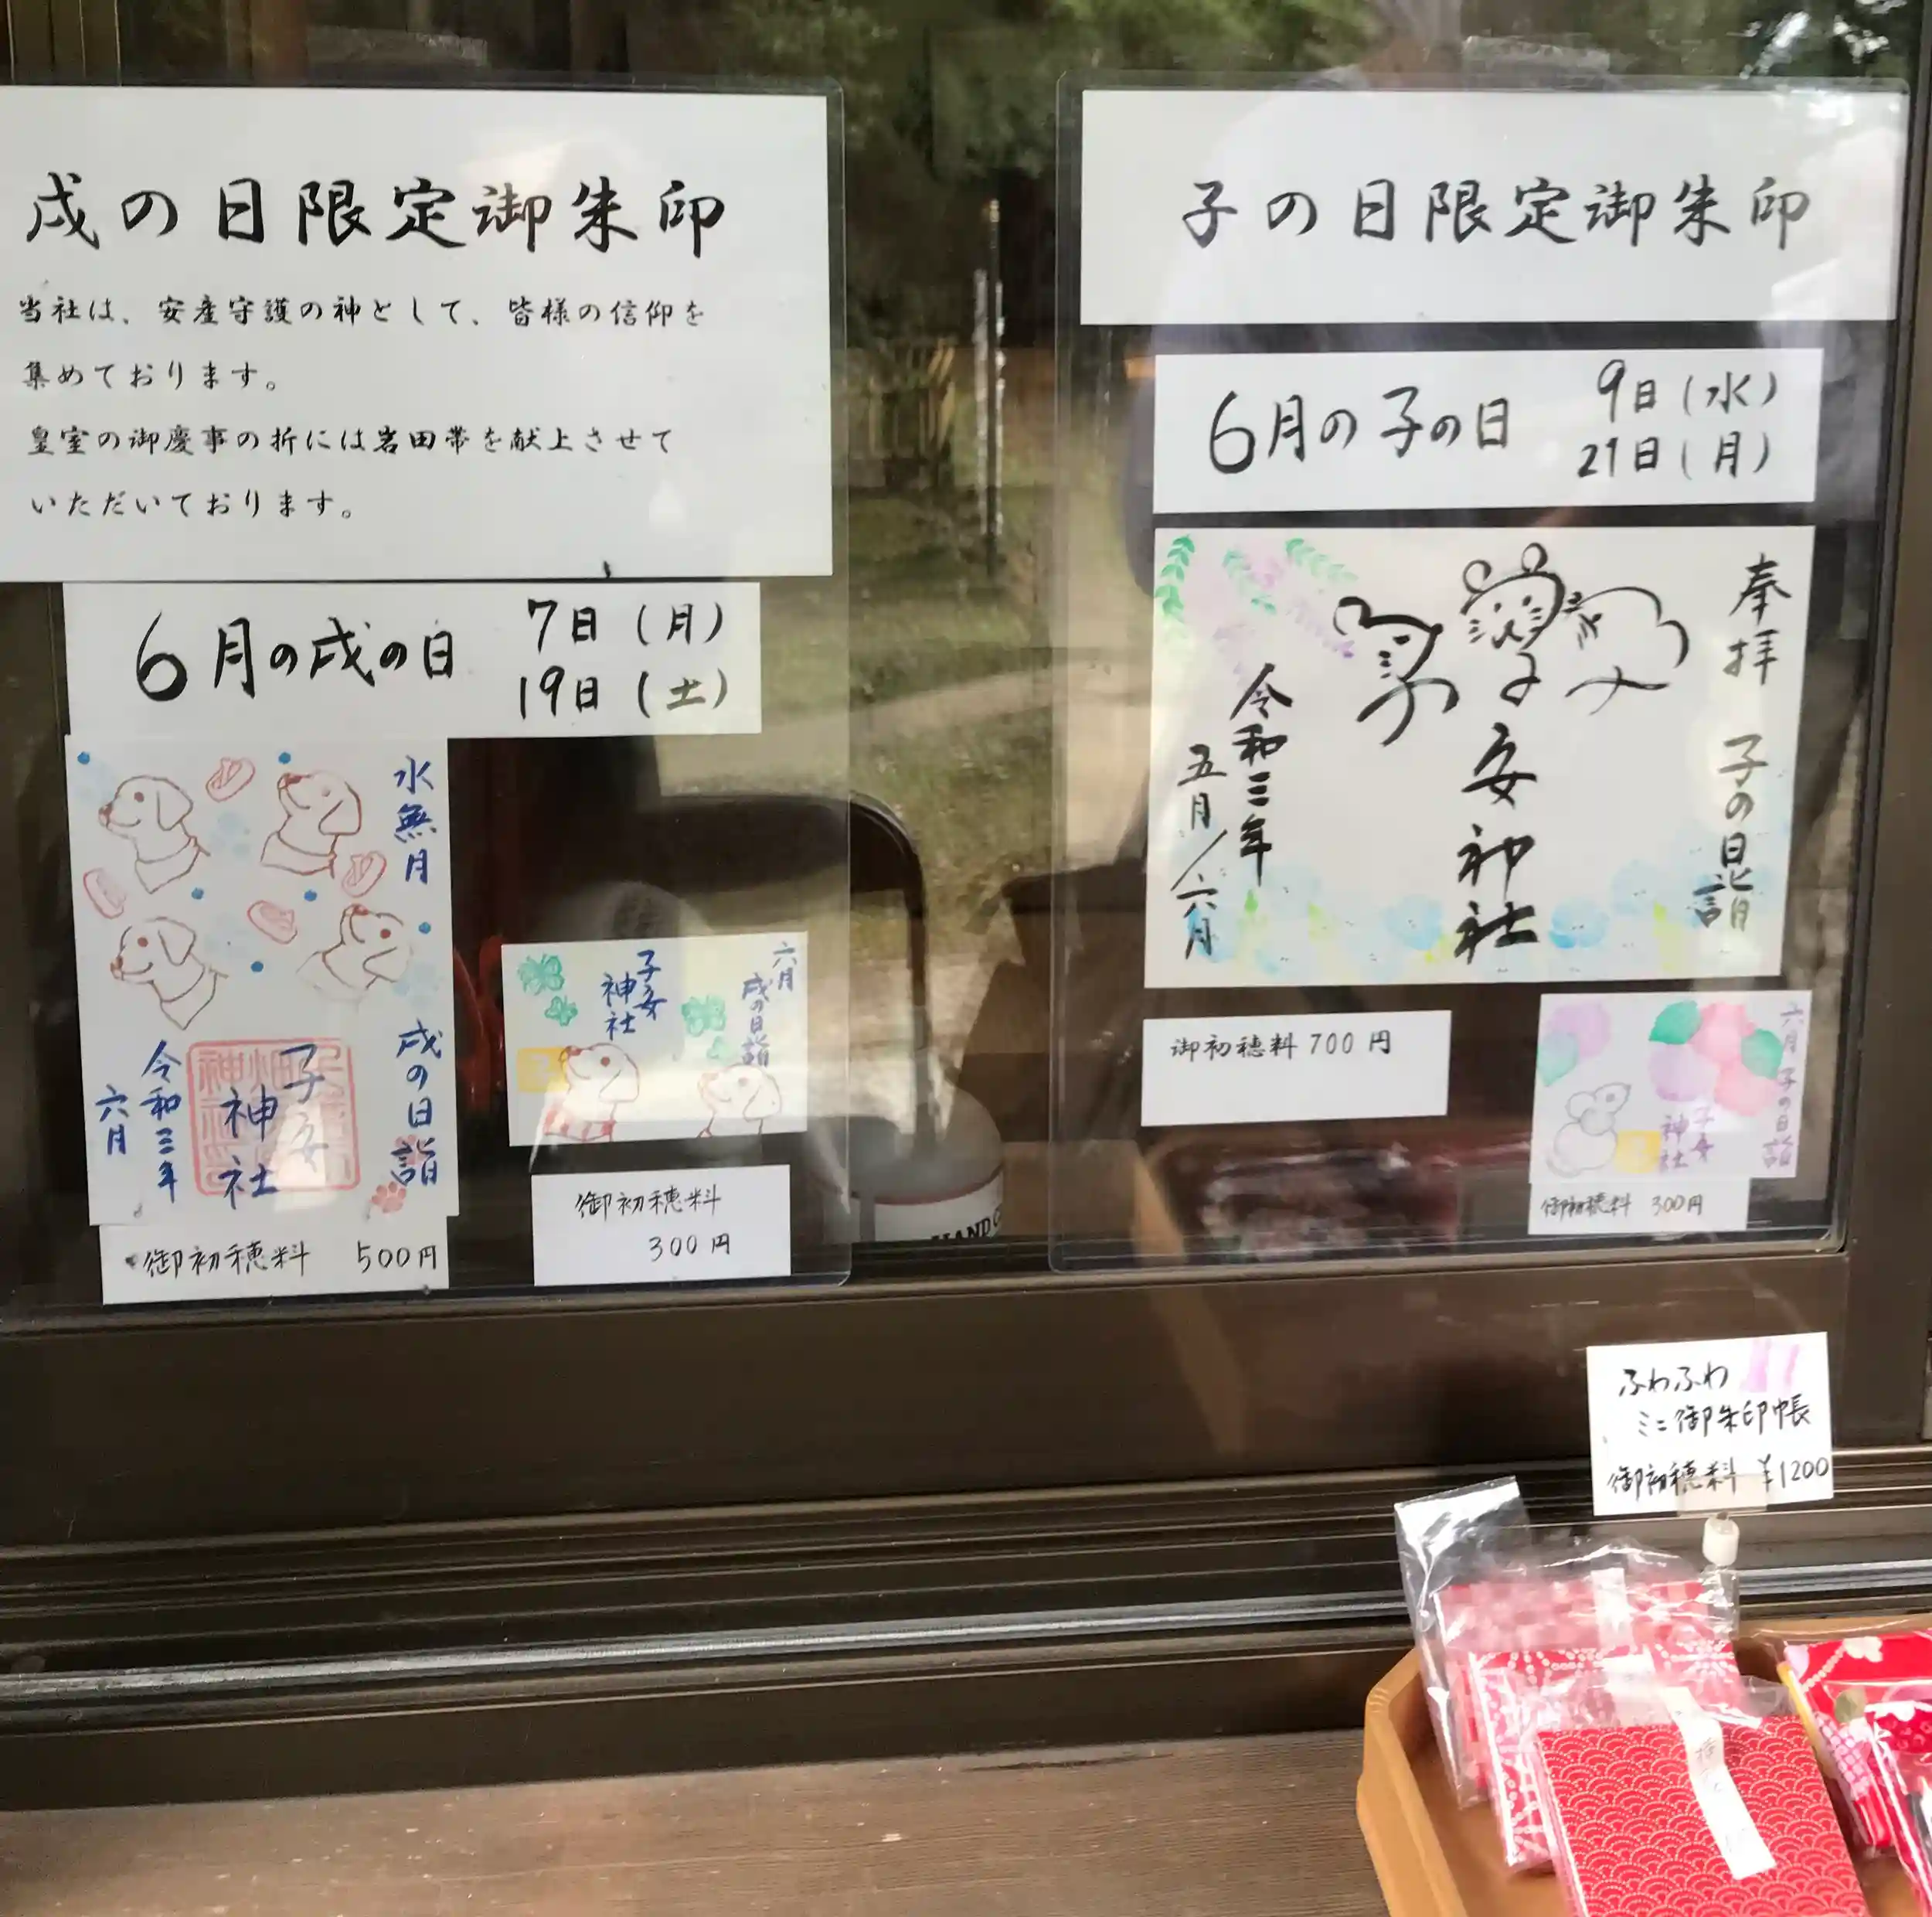 戌の日限定御朱印
当社は、安産守護の神として、皆様の信仰を
集めております。
皇室の御慶事の折には岩田帯を献上させて
いただいております。
6月の戌の日
7日（月）
19日（土）
水無月
戌の日詣
子安
神社
令和三年
六月
御初穂料 500円
六月
戌の日詣
子安
神社
御初穂料
300円
子の日限定御朱印
6月の子の日
9日（水）
21日（月）
奉拝 子の日詣
子安神社
令和三年
五月／六月
御初穂料 700円
六月 子の日詣
子安
神社
御初穂料 300円
ふわふわ
ミニ御朱印帳
御初穂料 ¥1200
HAND